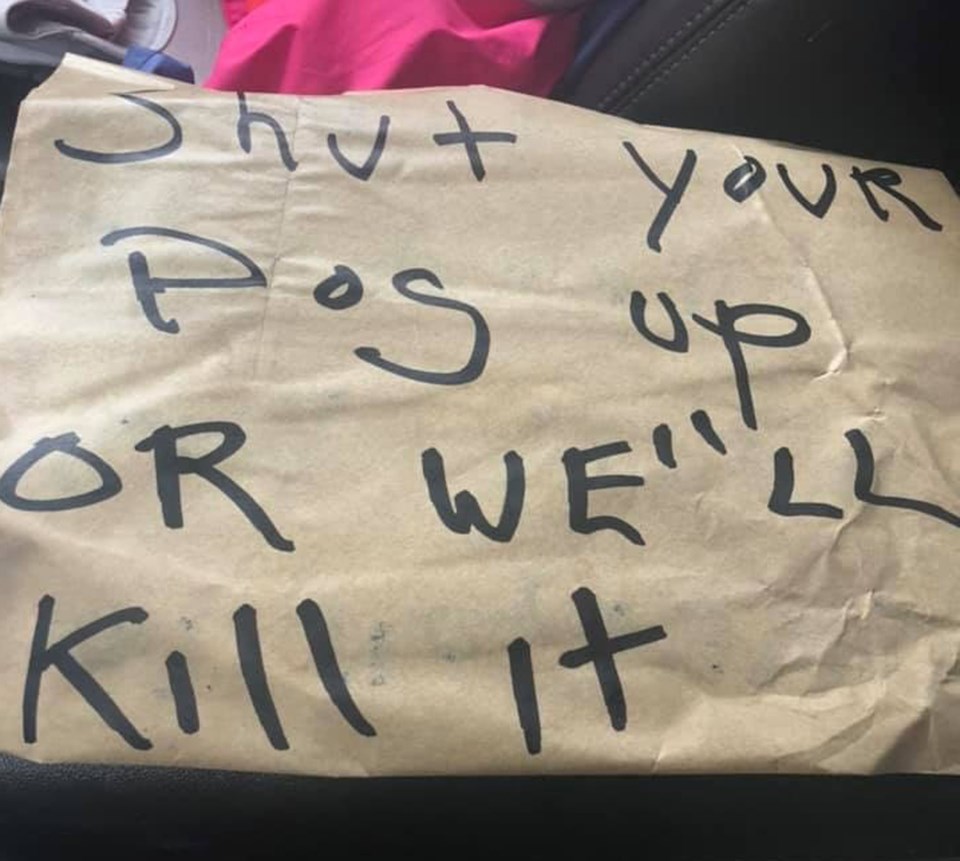 Shut youR
Dog up
OR WE"LL
Kill it